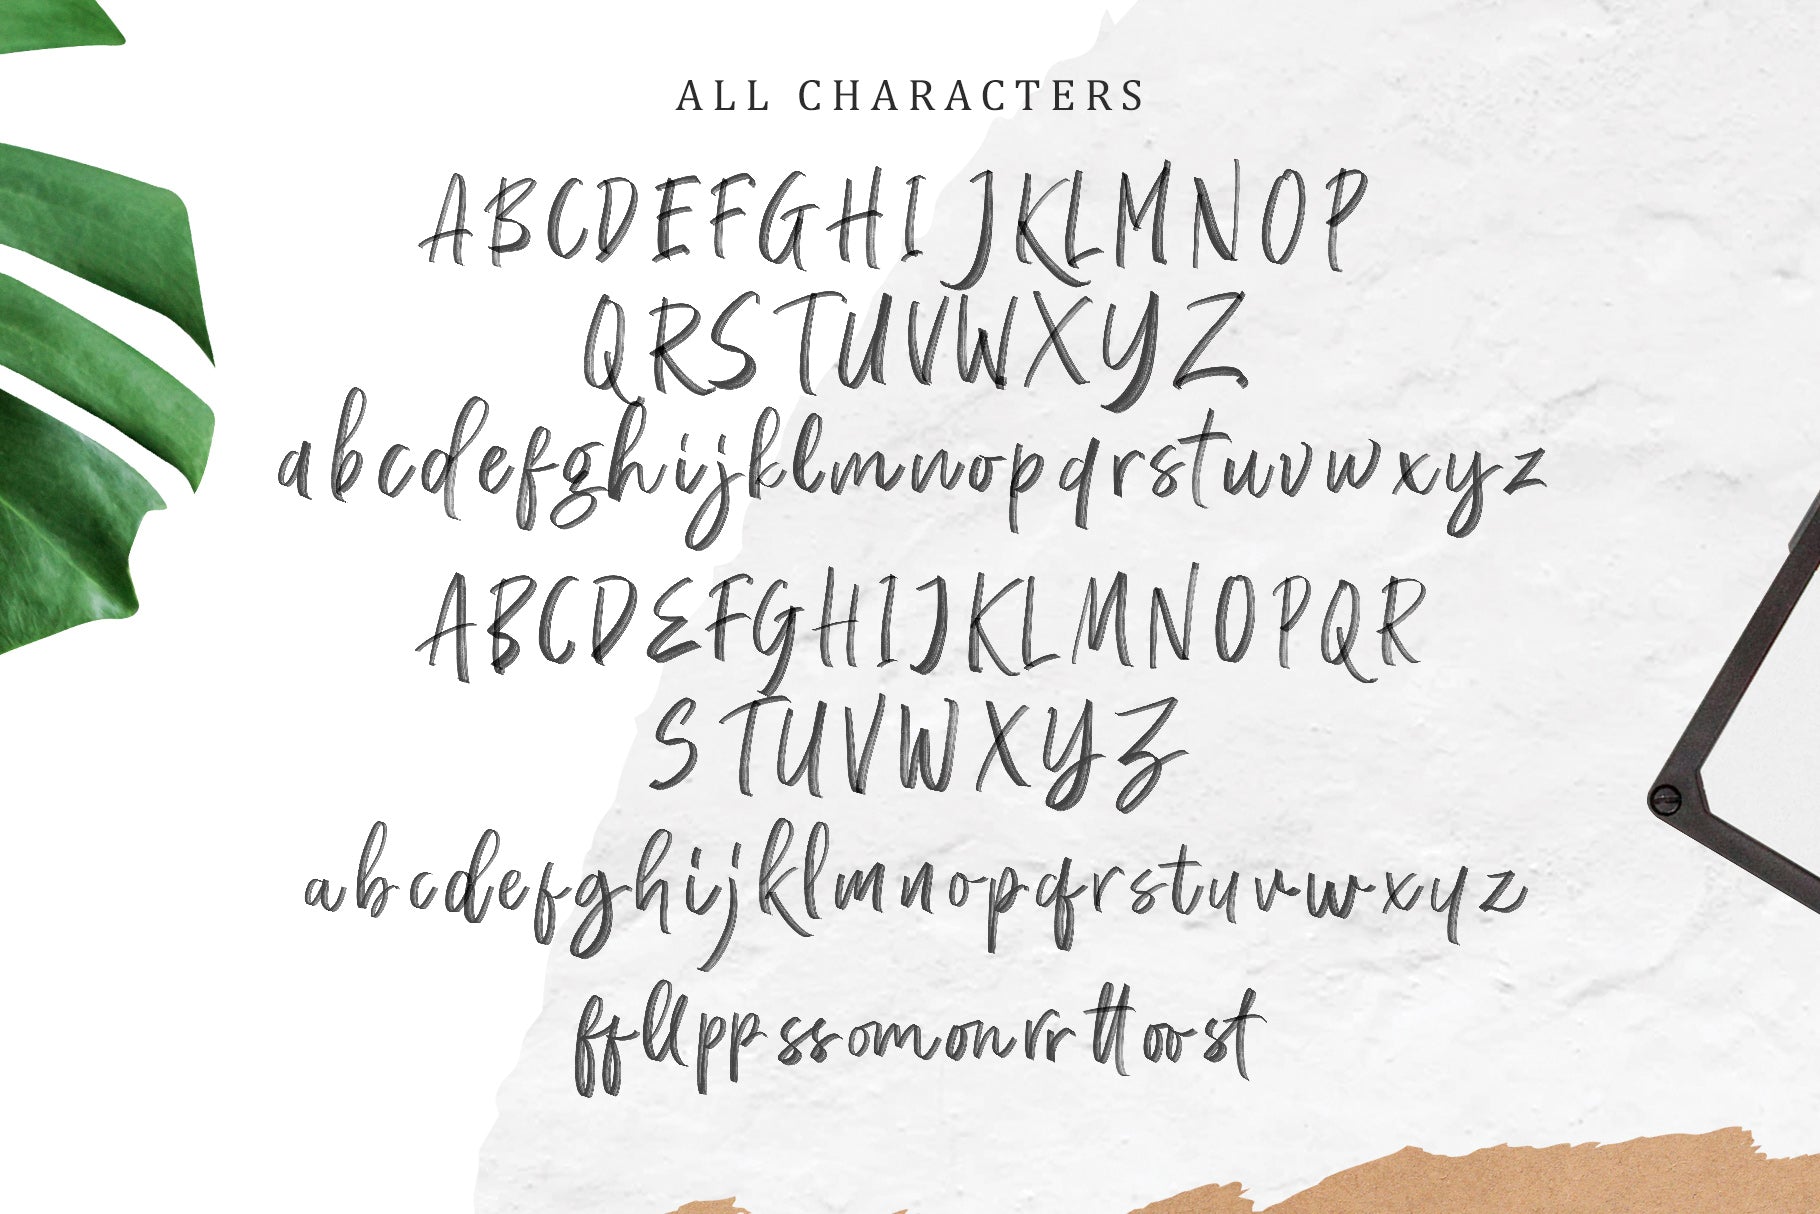 ALL CHARACTERS
ABCDEFGHIJKLMNOP
QRSTUVWXYZ
abcdefghijklmnopqrstuvwxyz
ABCDEFGHIJKLMNOPQR
STUVWXYZ
abcdefghijklmnopqrstuvwxyz
ffllppssomonrrttoost